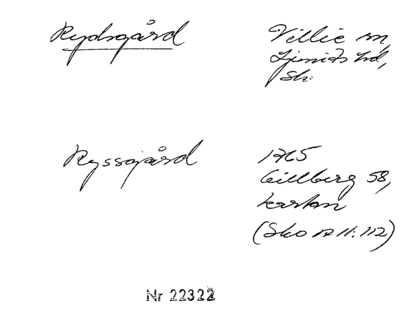 Rydsgård
Villie sn,
Ljunits hd,
Sk.
Ryssgård
1765
Gillberg 58,
kartan
(Sko 12 11:112)
Nr 22322